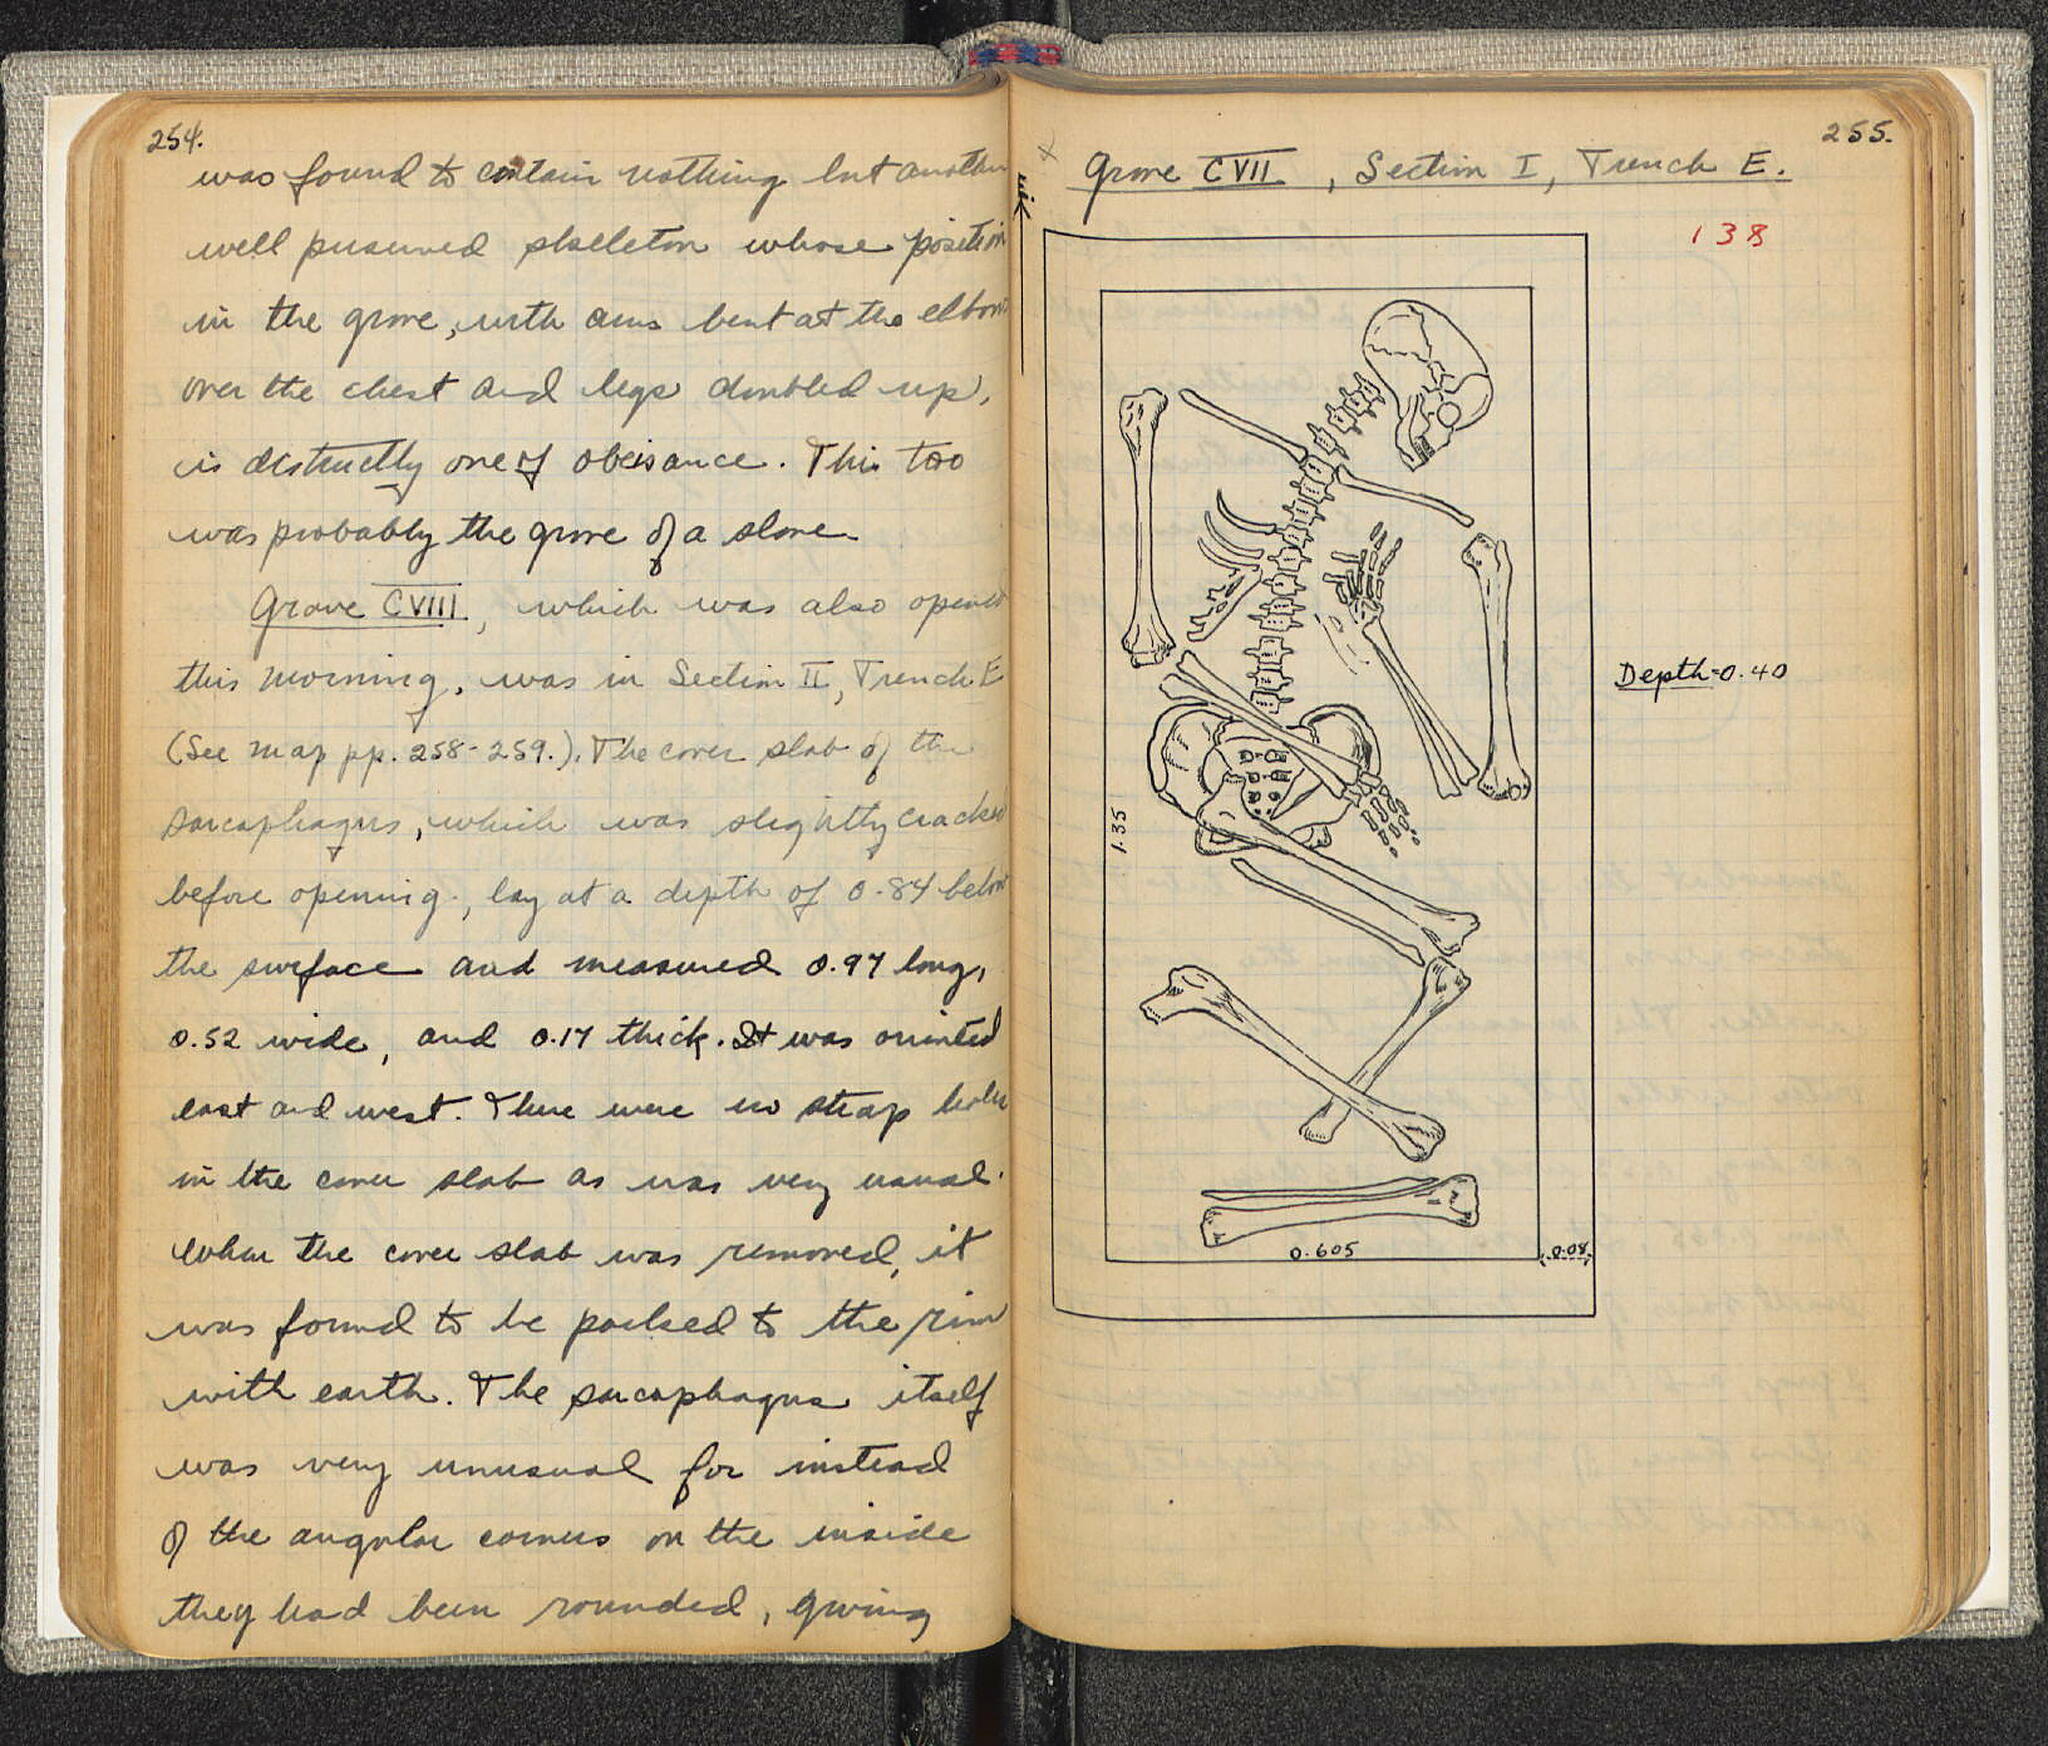 254.
was found to contain nothing but another
well preserved skeleton whose position
in the grave, with arms bent at the elbows
over the chest and legs doubled up,
is distinctly one of obeisance. This too
was probably the grave of a slave.
Grave CVIII, which was also opened
this morning, was in Section II, Trench E
(See map pp. 258-259.). The cover slab of the
sarcophagus, which was slightly cracked
before opening, lay at a depth of 0.84 below
the surface and measured 0.97 long,
0.52 wide, and 0.17 thick. It was oriented
east and west. There were no strap holes
in the cover slab as was very usual.
When the cover slab was removed, it
was found to be packed to the rim
with earth. The sarcophagus itself
was very unusual for instead
of the angular corners on the inside
they had been rounded, giving
255.
Grave CVII, Section I, Trench E.
138
Depth=0.40
1.35
0.605
0.08